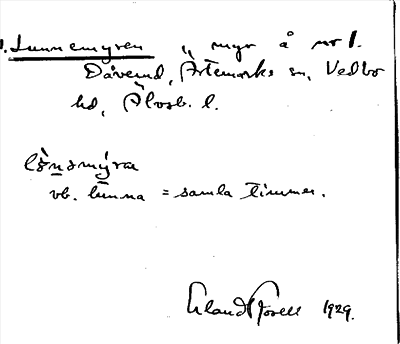 1. Lunnemyren „ myr å nr 1.
Dåverud, Ärtemarks sn, Vedbo
hd, Älvsb. l.
lø̀nəmýra
vb. lunna = samla timmer.
Erland Rosell 1929.